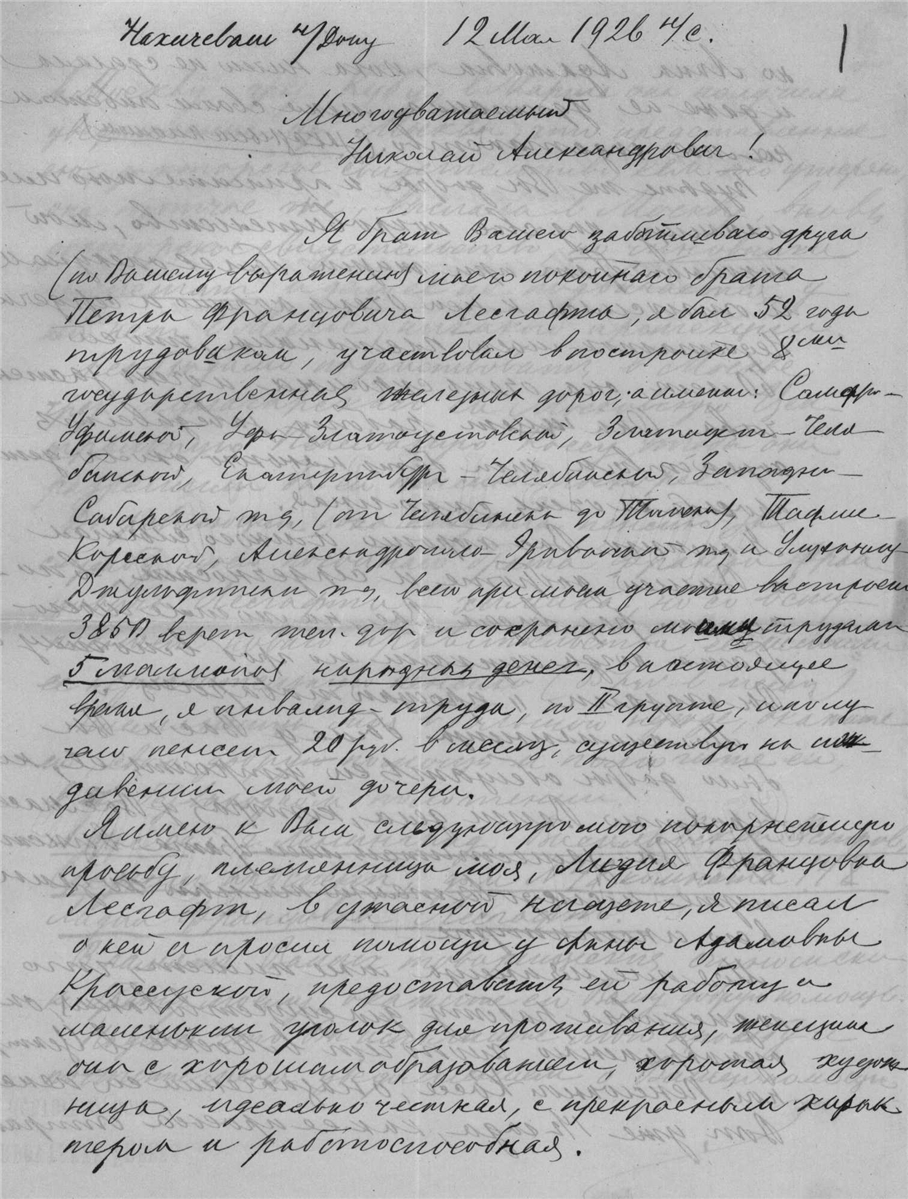 Нахичевань н/Дону 12 Мая 1926 н/с.
1
Многоуважаемый
Николай Александрович!
Я брат Вашего заботливаго друга
(по Вашему выражению) моего покойнаго брата
Петра Францовича Лесгафта, я был 52 года
трудовиком, участвовал в постройке 8ми
государственных железных дорог, а именно: Самаро-
Уфимской, Уфа-Златоустовской, Златоуст-Челя
бинской, Екатеринбург-Челябинской, Западно-
Сибирской ж д, (от Челябинска до Томска),
Карсской, Александрополь-Эриванской ж д и Улуханлу
Джульфинской ж д, всего при моем участие выстроено
3850 верст жел. дор и сохранено моими трудами
5 миллионов народных денег, в настоящее
время, я инвалид-труда, по II группе, и полу
чаю пенсии 20 руб. в месяц, существую на иж
дивении моей дочери.
Я имею к Вам следующую мою покорнейшую
просьбу, племянница моя, Лидия Францовна
Лесгафт, в ужасной нищете, я писал
о ней и просил помощи у Анны Адамовны
Красуской, предоставить ей работу и
маленький уголок для проживания, женщина
она с хорошим образованием, хорошая худож
ница, идеально честная, с прекрасным харак
тером и работоспособная.